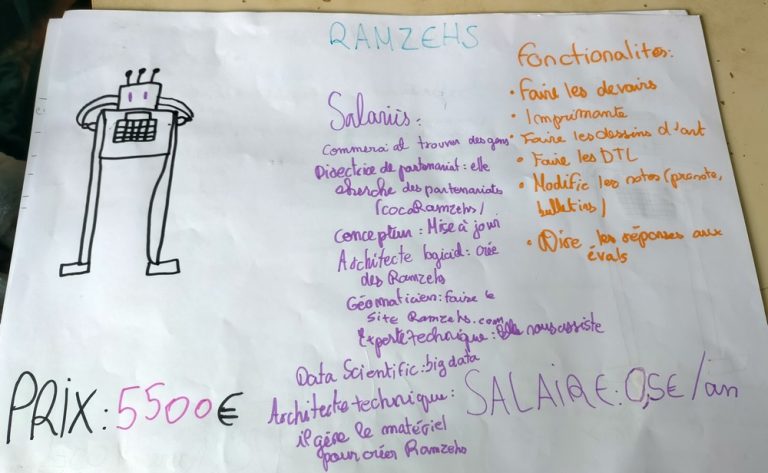 RAMZEHS
Salariés :
Commercial trouver des gens
Directrice de partenariat : elle
cherche des partenariats
(cocaRamzehs)
concepteur : Mise à jour
Architecte logiciel : crée
des Ramzehs
Géomaticien : faire le
site Ramzehs.com
Experte technique : Elle nous assiste
Data Scientific : big data
Architecte technique :
il gère le matériel
pour créer Ramzehs
Fonctionalités :
• Faire les devoirs
• Imprimante
• Faire les dessins d'art
• Faire les DTL
• Modific les notes (pronote,
bulletins)
• Dire les réponses aux
évals
PRIX : 5500€
SALAIRE : 0,5€/an